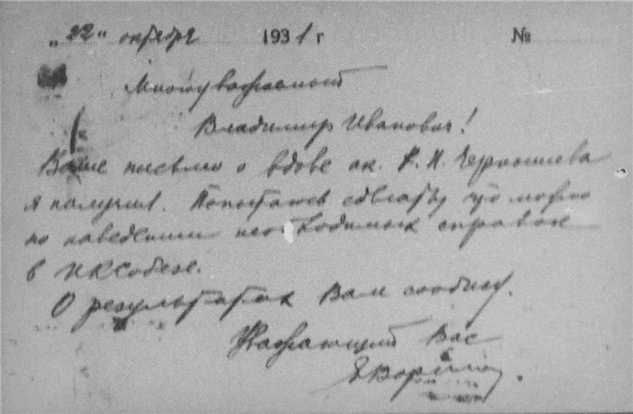 „22" октября 1931 г №
Многоуважаемый
Владимир Иванович!
Ваше письмо о вдове ак. Ф. Н. Чернышева
я получил. Попытаюсь сделать, что можно
по наведении необходимых справок
в НКСобезе.
О результатах Вам сообщу.
Уважающий Вас